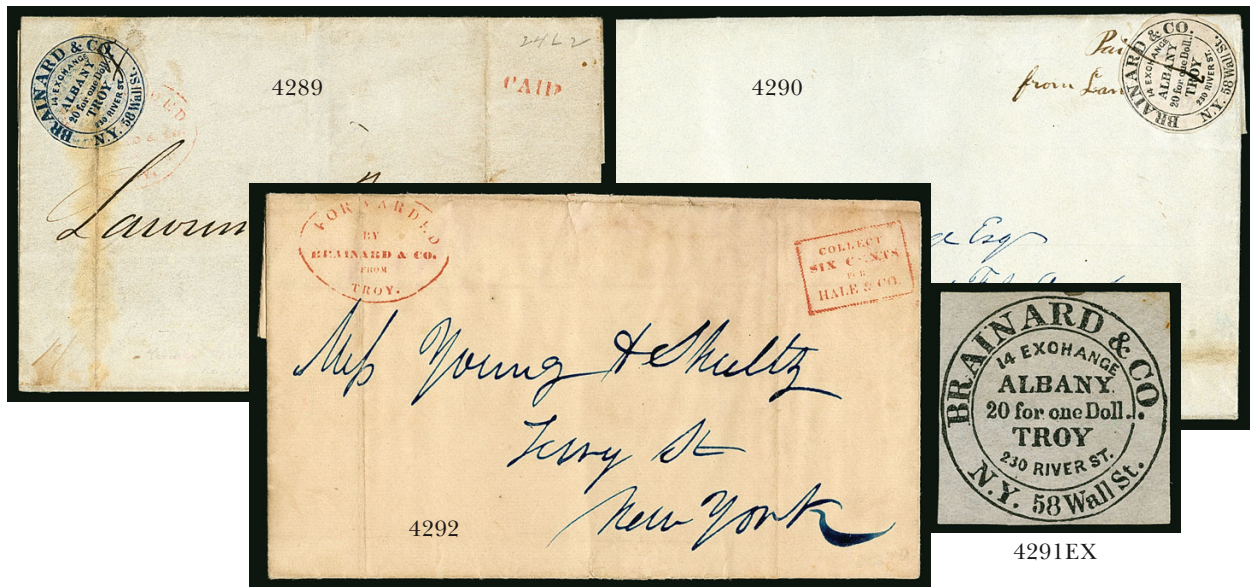 BRAINARD & CO.
14 EXCHANGE
ALBANY
20 for one Doll.
TROY
230 RIVER ST.
N.Y. 58 Wall St.
4289
24L2
PAID
4290
BRAINARD & CO.
14 EXCHANGE
ALBANY
20 for one Doll.
TROY
230 RIVER ST.
N.Y. 58 Wall St.
from
Esq
FORWARDED
BY
BRAINARD & CO.
FROM
TROY.
COLLECT
SIX CENTS
FOR
HALE & CO.
Mess Young & Shultz
Ferry St
New York
4292
BRAINARD & CO.
14 EXCHANGE
ALBANY
20 for one Doll.
TROY
230 RIVER ST.
N.Y. 58 Wall St.
4291EX